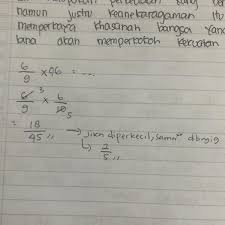 namun justru keanekaragaman itu
memperkaya khasanah bangsa yang
akan memperkokoh
6/9 × 96 = ...
6/9 3 × 6/10 5
= 18/45 ,, → jika diperkecil, sama² dibagi
↳ 2/5 ,,